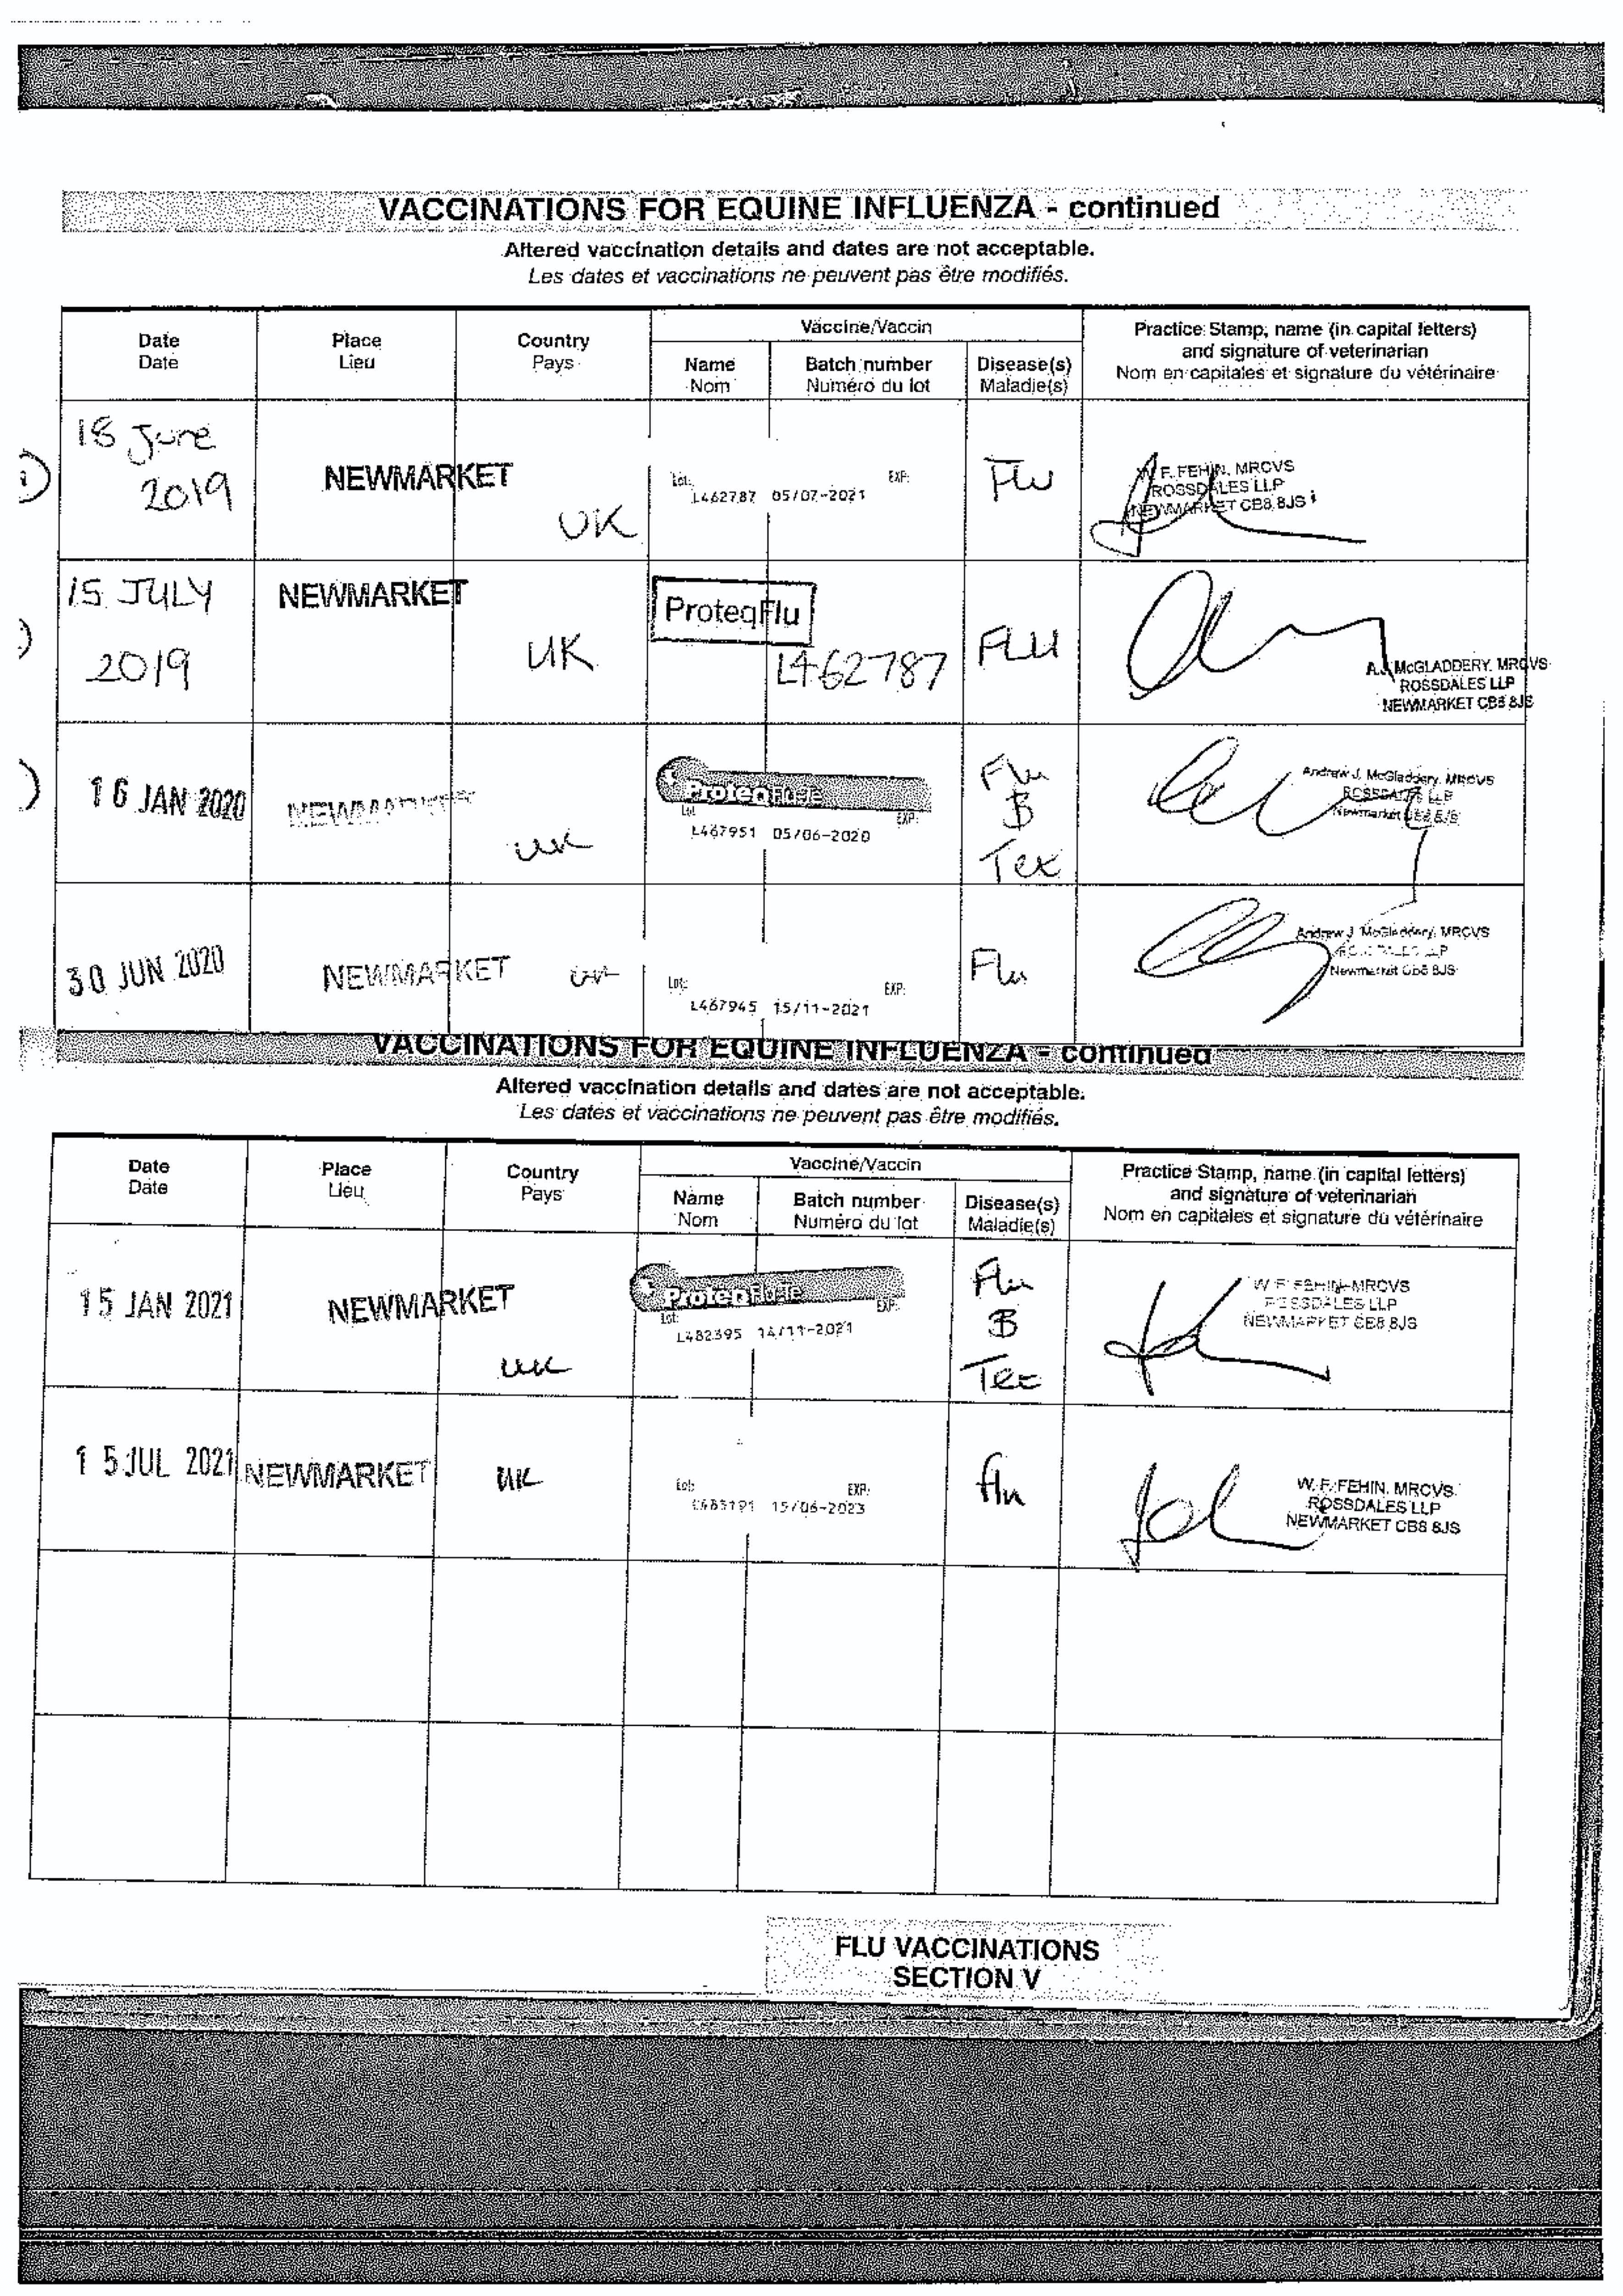 VACCINATIONS FOR EQUINE INFLUENZA - continued
Altered vaccination details and dates are not acceptable.
Les dates et vaccinations ne peuvent pas être modifiés.
Date
Date
Place
Lieu
Country
Pays
Vaccine/Vaccin
Name
Nom
Batch number
Numéro du lot
Disease(s)
Maladie(s)
Practice Stamp, name (in capital letters)
and signature of veterinarian
Nom en capitales et signature du vétérinaire
18 June
2019
NEWMARKET
UK
Lot: EXP:
L462787 05/07-2021
Flu
W. F. FEHIN, MRCVS
ROSSDALES LLP
NEWMARKET CB8 8JS
15 JULY
2019
NEWMARKET
UK
ProteqFlu
L462787
FLU
A.J. McGLADDERY, MRCVS
ROSSDALES LLP
NEWMARKET CB8 8JS
16 JAN 2020
NEWMARKET
UK
ProteqFlu-Te
Lot: EXP:
L467951 05/06-2020
Flu
B
Tet
Andrew J. McGladdery, MRCVS
ROSSDALES LLP
Newmarket CB8 8JS
30 JUN 2020
NEWMARKET
UK
Lot: EXP:
L467945 15/11-2021
Flu
Andrew J. McGladdery, MRCVS
ROSSDALES LLP
Newmarket CB8 8JS
VACCINATIONS FOR EQUINE INFLUENZA - continued
Altered vaccination details and dates are not acceptable.
Les dates et vaccinations ne peuvent pas être modifiés.
Date
Date
Place
Lieu
Country
Pays
Vaccine/Vaccin
Name
Nom
Batch number
Numéro du lot
Disease(s)
Maladie(s)
Practice Stamp, name (in capital letters)
and signature of veterinarian
Nom en capitales et signature du vétérinaire
15 JAN 2021
NEWMARKET
UK
ProteqFlu-Te
Lot: EXP:
L482395 14/11-2021
Flu
B
Tet
W. F. FEHIN, MRCVS
ROSSDALES LLP
NEWMARKET CB8 8JS
15 JUL 2021
NEWMARKET
UK
Lot: EXP:
15/06-2023
Flu
W. F. FEHIN, MRCVS
ROSSDALES LLP
NEWMARKET CB8 8JS
FLU VACCINATIONS
SECTION V